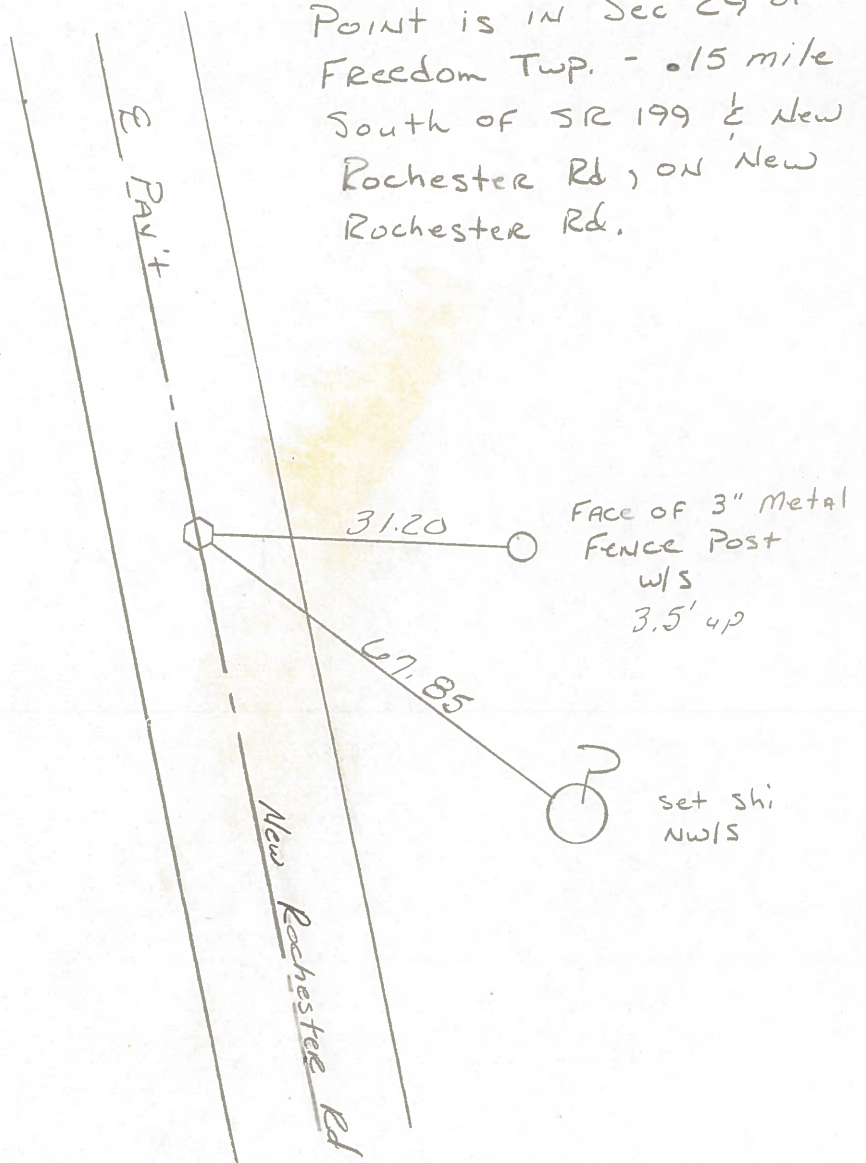 Point is in Sec 29 of
Freedom Twp. - .15 mile
South of SR 199 & New
Rochester Rd, on New
Rochester Rd.
℄ Pav't
31.20
Face of 3" Metal
Fence Post
w/s
3.5' up
67.85
set shi
NW/S
New Rochester Rd